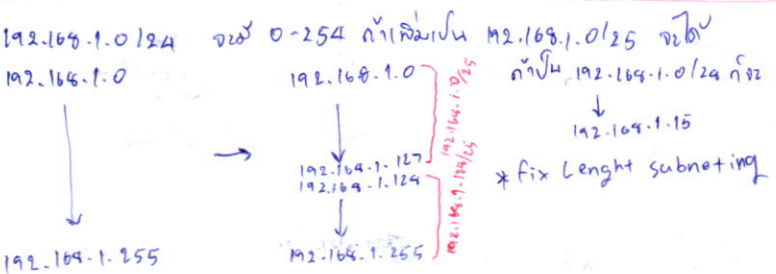 192.168.1.0/24 จะมี 0-254 ถ้าเพิ่มเป็น 192.168.1.0/25 จะได้
192.168.1.0
192.168.1.255
192.168.1.0
192.168.1.127
192.168.1.128
192.168.1.255
192.168.1.0/25
192.168.1.128/25
ถ้าเป็น 192.168.1.0/28 ก็จะ
192.168.1.15
* fix Lenght subneting